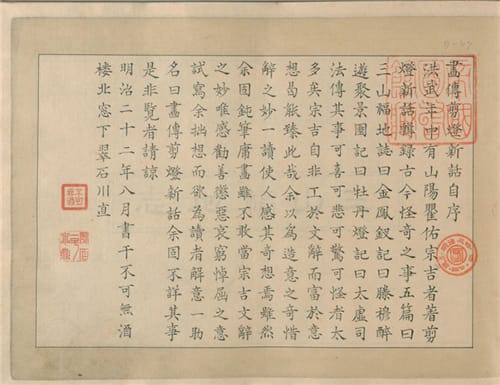 畫傳剪燈新話自序
洪武年中有山陽瞿佑宗吉者著剪
燈新話輯錄古今怪奇之事五篇曰
三山福地誌曰金鳳釵記曰滕穆醉
遊聚景園記曰牡丹燈記曰太虛司
法傳其事可喜可悲可驚可怪者太
多矣宗吉自非工於文辭而富於意
想曷能臻此哉余以為造意之奇措
辭之妙一讀使人感其奇想焉雖然
余固鈍筆庸畫雖不敢當宗吉文辭
之妙唯感勸善懲惡哀窮悼屈之意
試寫余拙想而欲為讀者解意一助
名曰畫傳剪燈新話余固不詳其事
是非覽者請諒
明治二十二年八月書于不可無酒
楼北窓下翠石川直